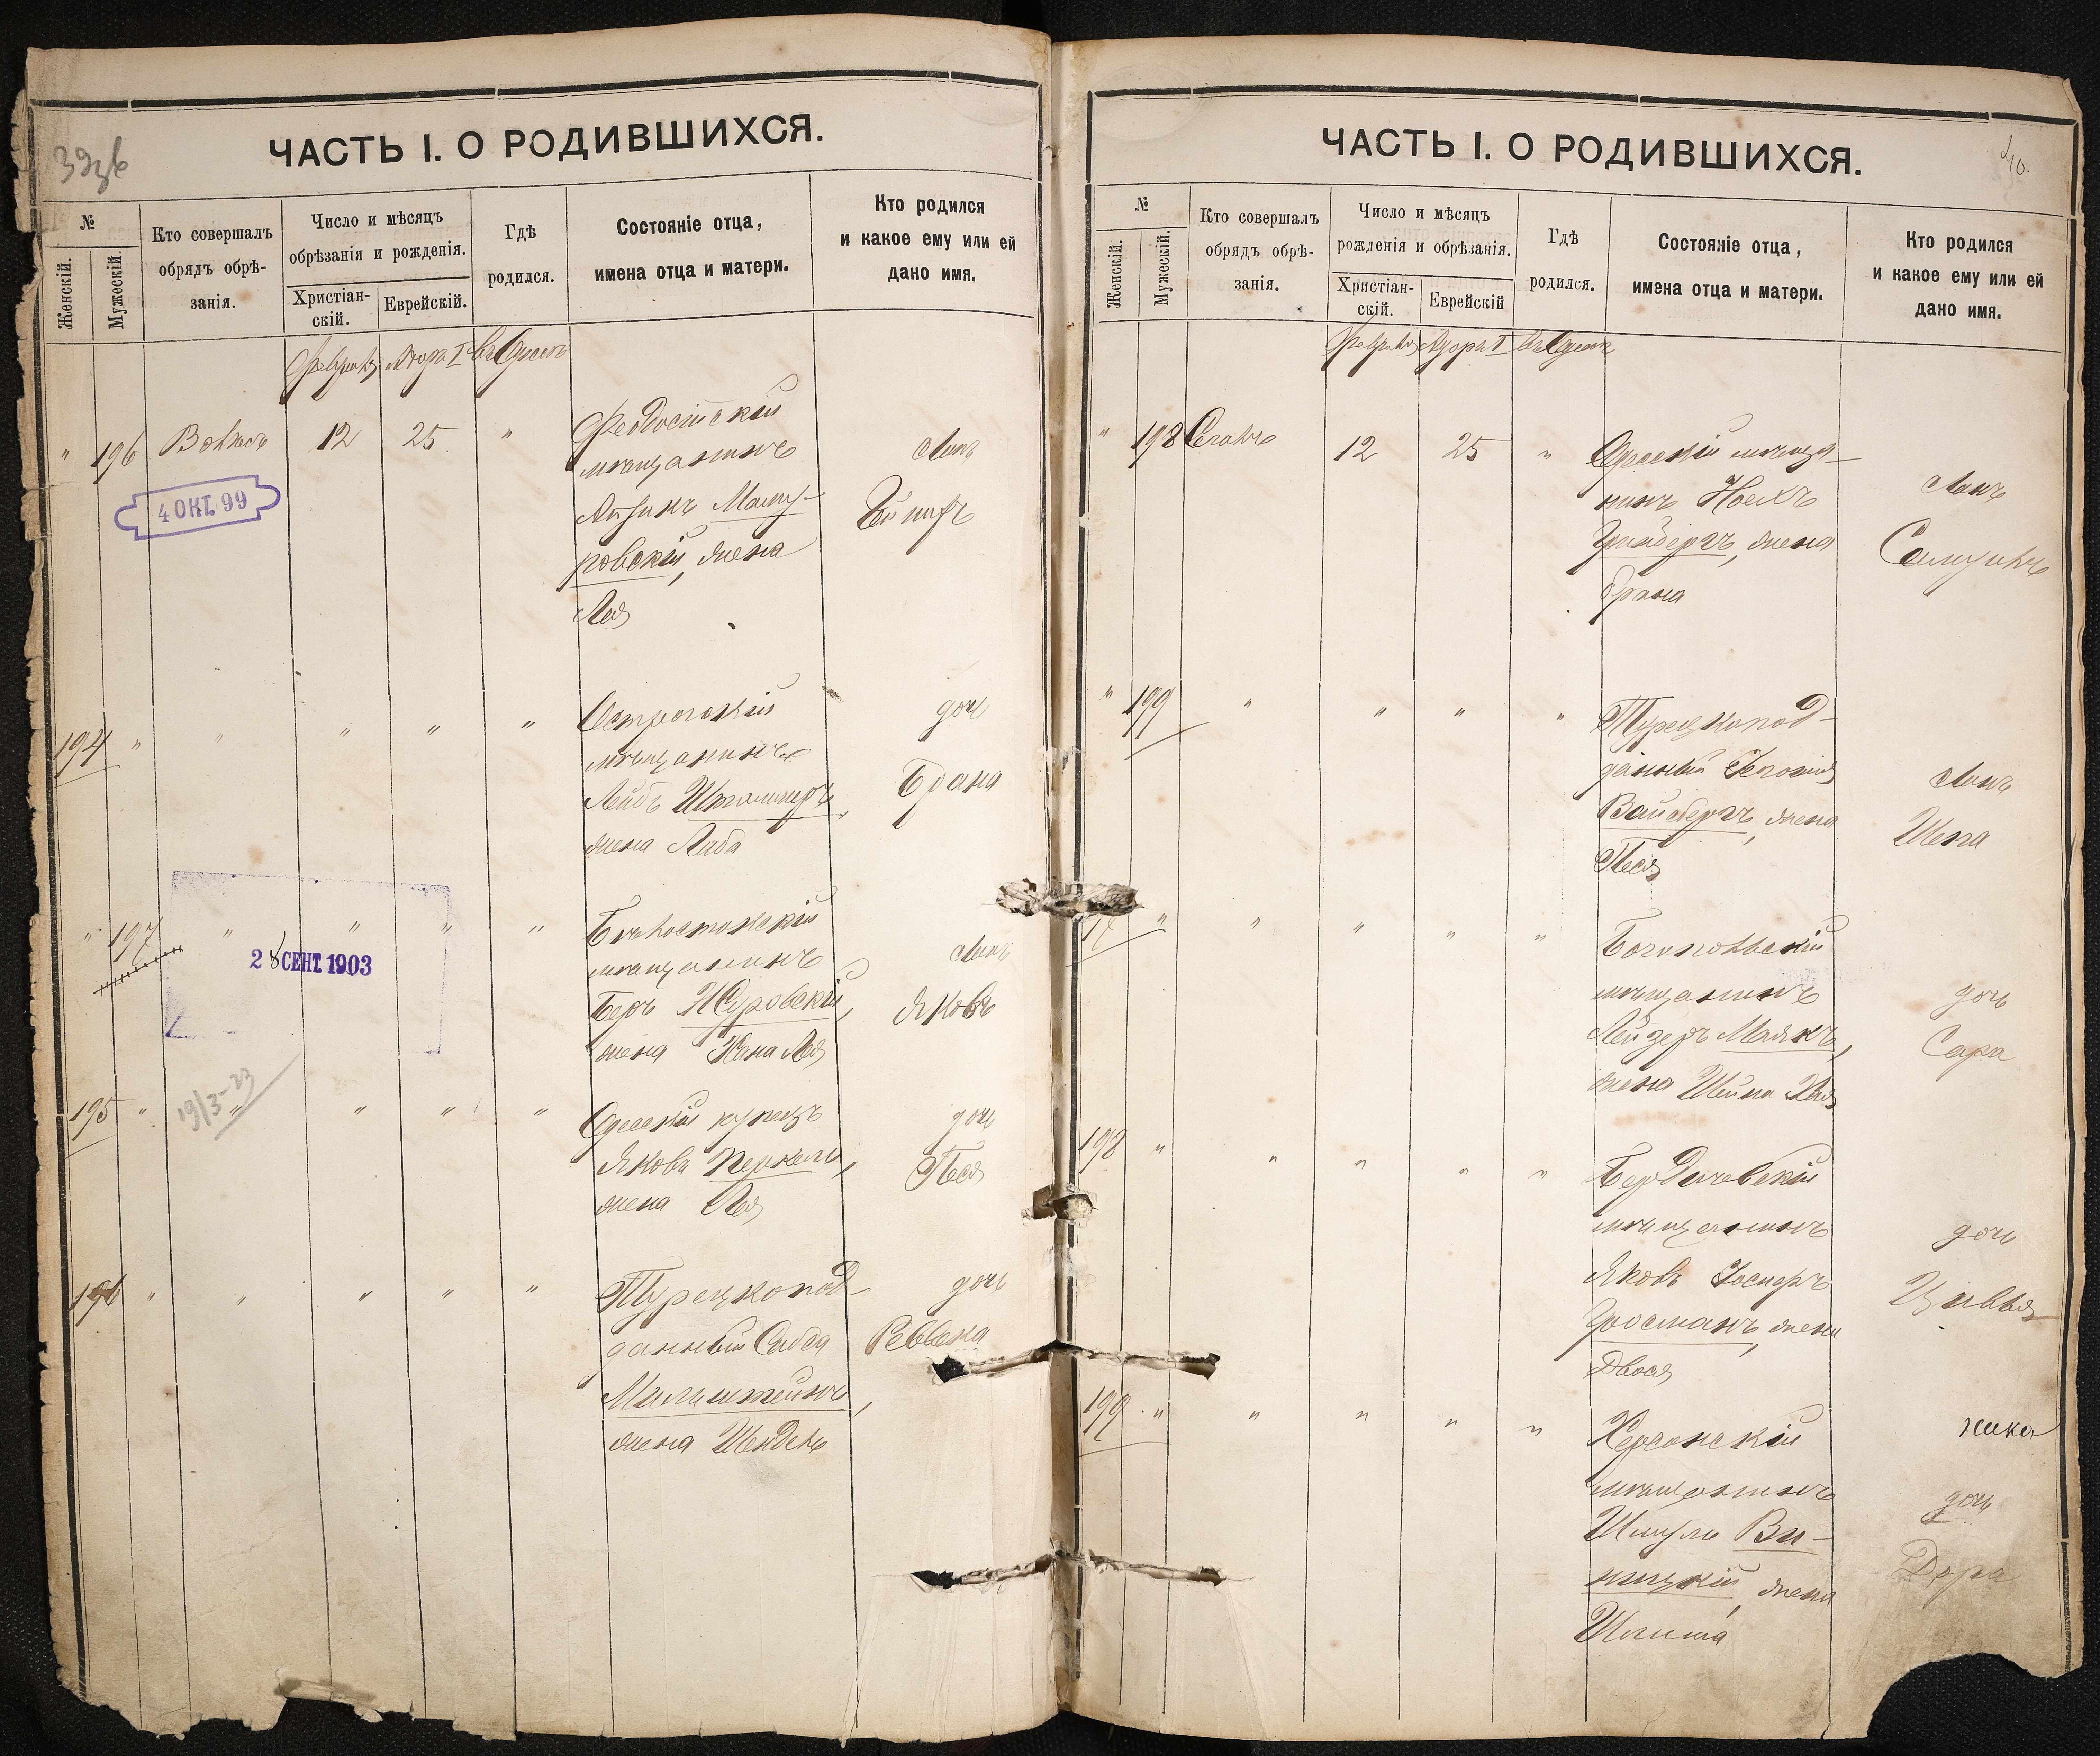 39об
ЧАСТЬ I. О РОДИВШИХСЯ.
№
Женскій.
Мужескій.
Кто совершалъ
обрядъ обрѣ-
занія.
Число и мѣсяцъ
обрѣзанія и рожденія.
Христіан-
скій.
Еврейскій.
Гдѣ
родился.
Состояніе отца,
имена отца и матери.
Кто родился
и какое ему или ей
дано имя.
Февраль Адаръ I въ Одессѣ
" 196 12 25 "
Феодосійскій
мѣщанинъ
Айзикъ Мазу-
ровскій, жена
Лея
сынъ
4 ОКТ. 99
194 " " " " "
Острогскій
мѣщанинъ
Лейбъ Штаммеръ
жена Либа
дочь
Брана
" 197 " " " "
2 8 СЕНТ. 1903
Бѣлостокскій
мѣщанинъ
Беръ Журовскій,
жена Хана Лея
сынъ
Яковъ
19/3-23
195 " " " " "
Одесскій купецъ
Яковъ Перкель,
жена Лея
дочь
Песя
196 " " " " "
Турецкопод-
данный Сабся
Мильштейнъ,
жена Шейдель
дочь
Реввека
40.
ЧАСТЬ I. О РОДИВШИХСЯ.
№
Женскій.
Мужескій.
Кто совершалъ
обрядъ обрѣ-
занія.
Число и мѣсяцъ
рожденія и обрѣзанія.
Христіан-
скій.
Еврейскій
Гдѣ
родился.
Состояніе отца,
имена отца и матери.
Кто родился
и какое ему или ей
дано имя.
Февраль Адаръ I въ Одессѣ
" 198 12 25 "
Одесскій мѣща-
нинъ Носихъ
Гринбергъ, жена
Брана
сынъ
Самуилъ
" 199 " " " "
Турецкопод-
данный
Вайсбергъ, жена
Песя
сынъ
" " " " "
Богопольскій
мѣщанинъ
Лейзеръ Маякъ,
жена Шейна Хая
дочь
Сара
198 " " " " "
Бердичевскій
мѣщанинъ
Яковъ Іосифъ
Гросманъ, жена
Двося
дочь
Цивья
199 " " " " "
Херсонскій
мѣщанинъ
Шмуль Ви-
ницкій, жена
дочь
Дора